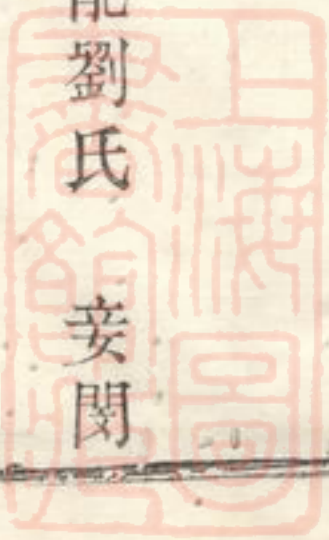 劉氏　妾閔
上海圖
書館藏